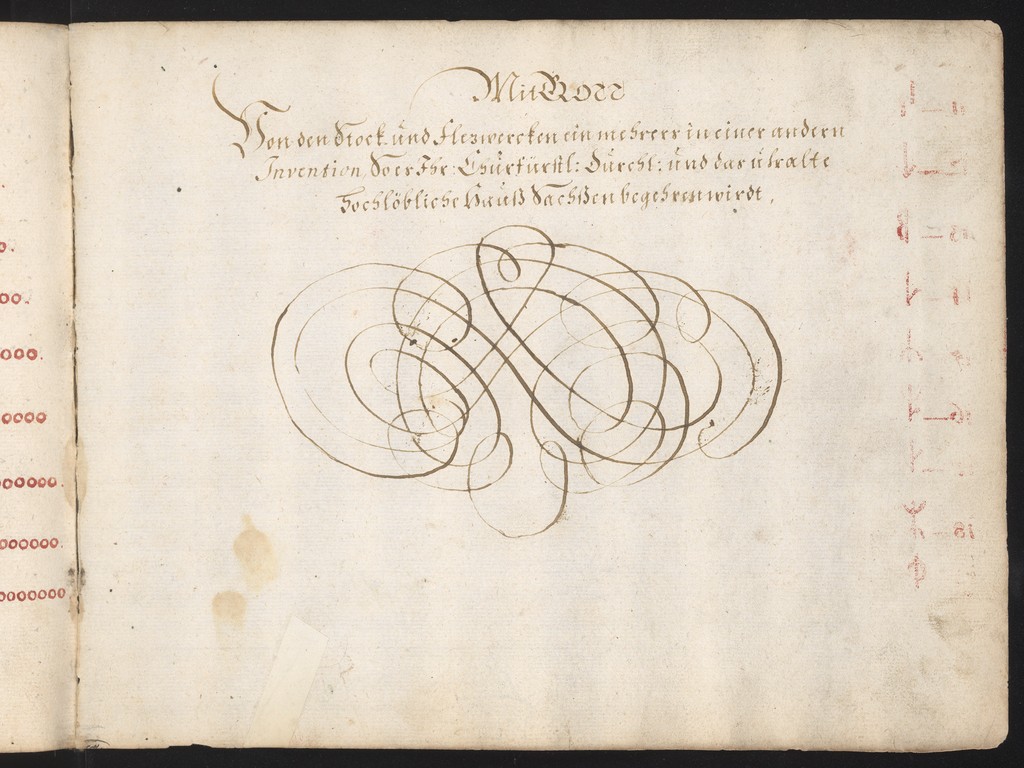 Mit Gott
Von den Stock und Flezwercken ein mehrers in einer andern
Invention, So es Ihr: Churfürstl: Durchl: und das uhralte
hochlöbliche Hauß Sachßen begehren wirdt,
o.
oo.
ooo.
oooo
ooooo.
oooooo.
ooooooo